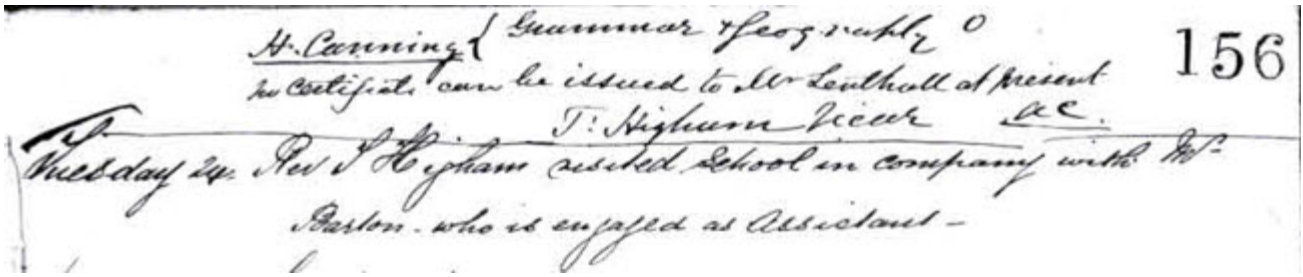 H. Canning { Grammar & Geography 0
156
no certificate can be issued to Mr Lenthall at present
T: Higham Vicar
Tuesday 24. Rev T Higham visited School in company with Mr
Barton - who is engaged as Assistant -